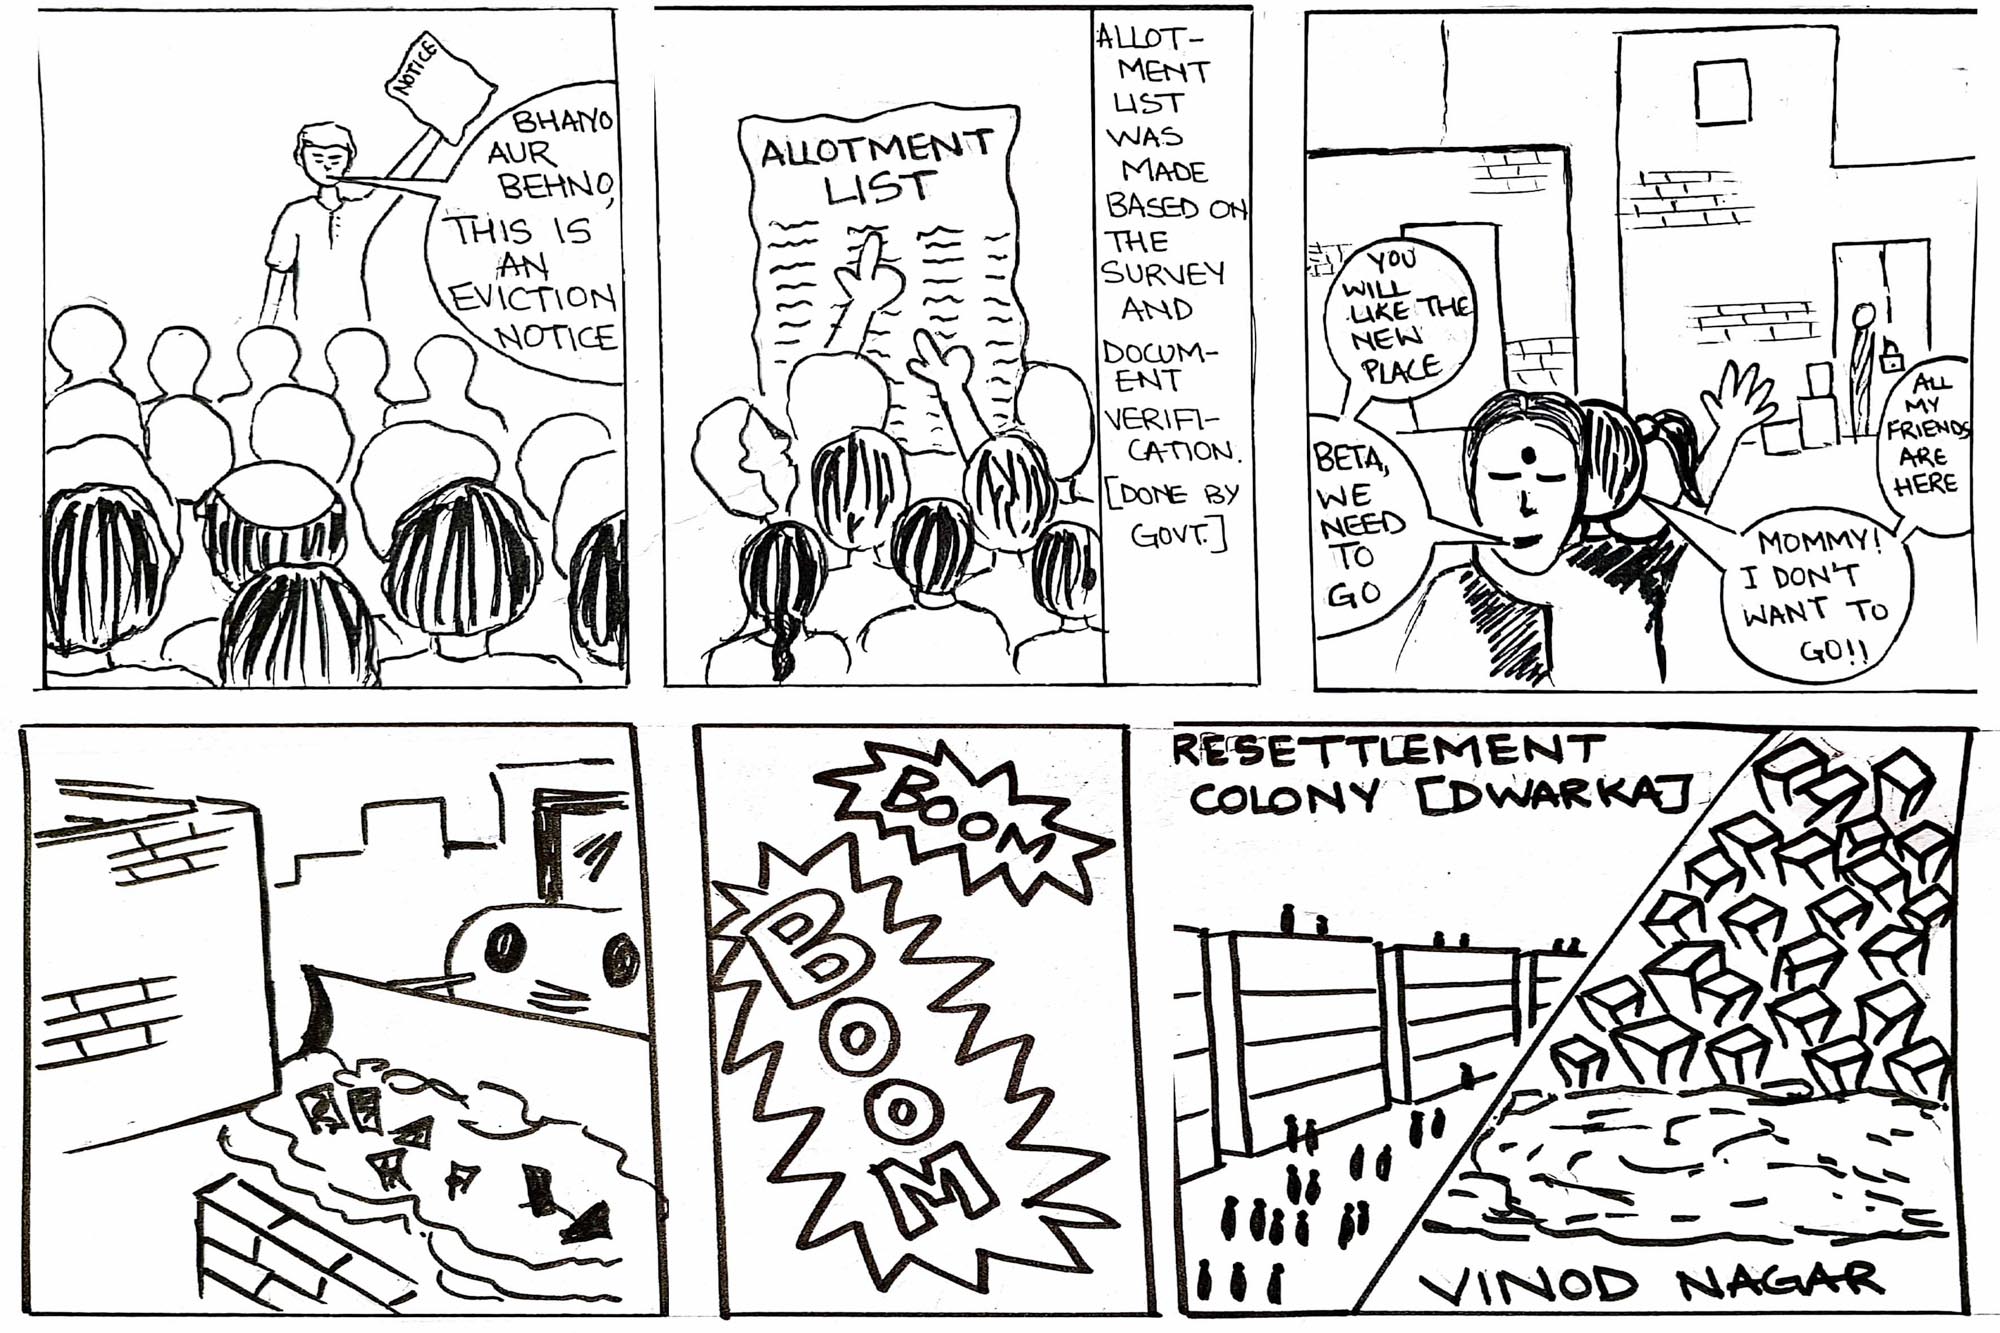 NOTICE
BHAIYO
AUR
BEHNO,
THIS IS
AN
EVICTION
NOTICE
ALLOTMENT
LIST
ALLOT-
MENT
LIST
WAS
MADE
BASED ON
THE
SURVEY
AND
DOCUM-
ENT
VERIFI-
CATION.
[DONE BY
GOVT.]
YOU
WILL
LIKE THE
NEW
PLACE
BETA,
WE
NEED
TO
GO
ALL
MY
FRIENDS
ARE
HERE
MOMMY!
I DON'T
WANT TO
GO!!
BOOM
BOOM
RESETTLEMENT
COLONY [DWARKA]
VINOD NAGAR